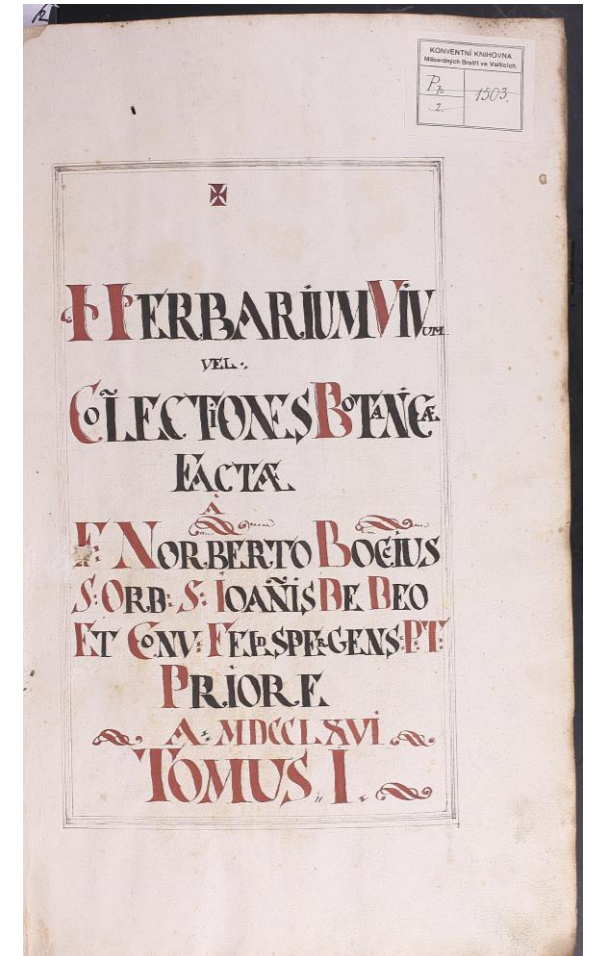 12
KONVENTNÍ KNIHOVNA
Milosrdných Bratří ve Valticích.
1503.
2.
HERBARIUM VIVUM
VEL.
COLECTIONES BOTANICÆ
FACTÆ
A
F: NORBERTO BOCCIUS
S: ORD: S: IOAÑIS DE DEO
ET CONV: FELDSPERGENS: P:T:
PRIORE
A: MDCCLXVI
TOMUS I.